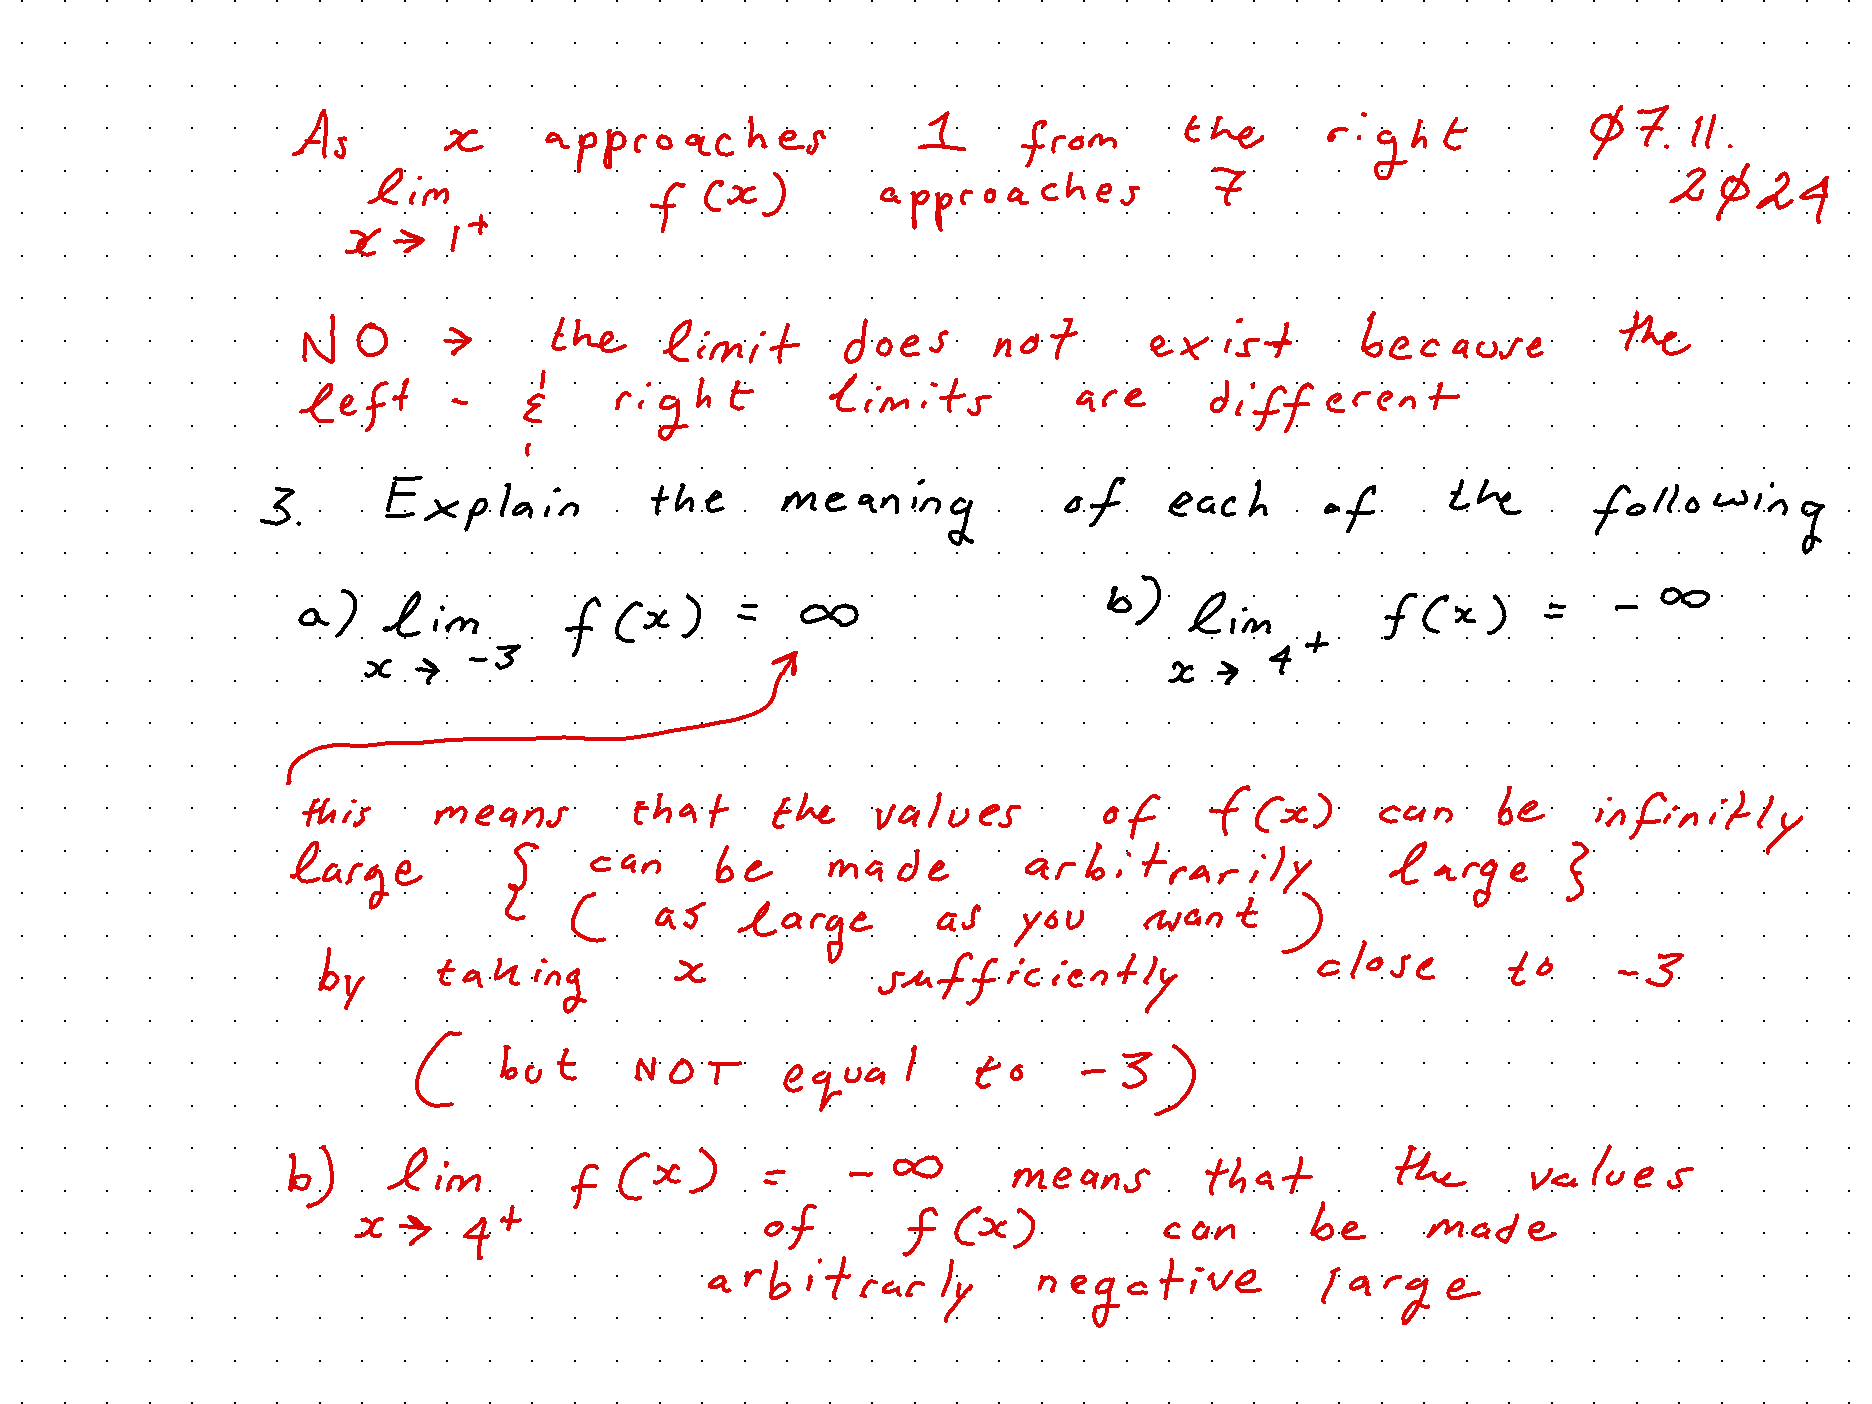 As x approaches 1 from the right Ø7.11.
lim f(x) approaches 7 2Ø24
x → 1⁺
NO → the limit does not exist because the
left - & right limits are different
3. Explain the meaning of each of the following
a) lim f(x) = ∞ b) lim f(x) = - ∞
x → -3 x → 4⁺
this means that the values of f(x) can be infinitly
large { can be made arbitrarily large }
( as large as you want )
by taking x sufficiently close to -3
( but NOT equal to -3 )
b) lim f(x) = - ∞ means that the values
x → 4⁺ of f(x) can be made
arbitrarly negative large